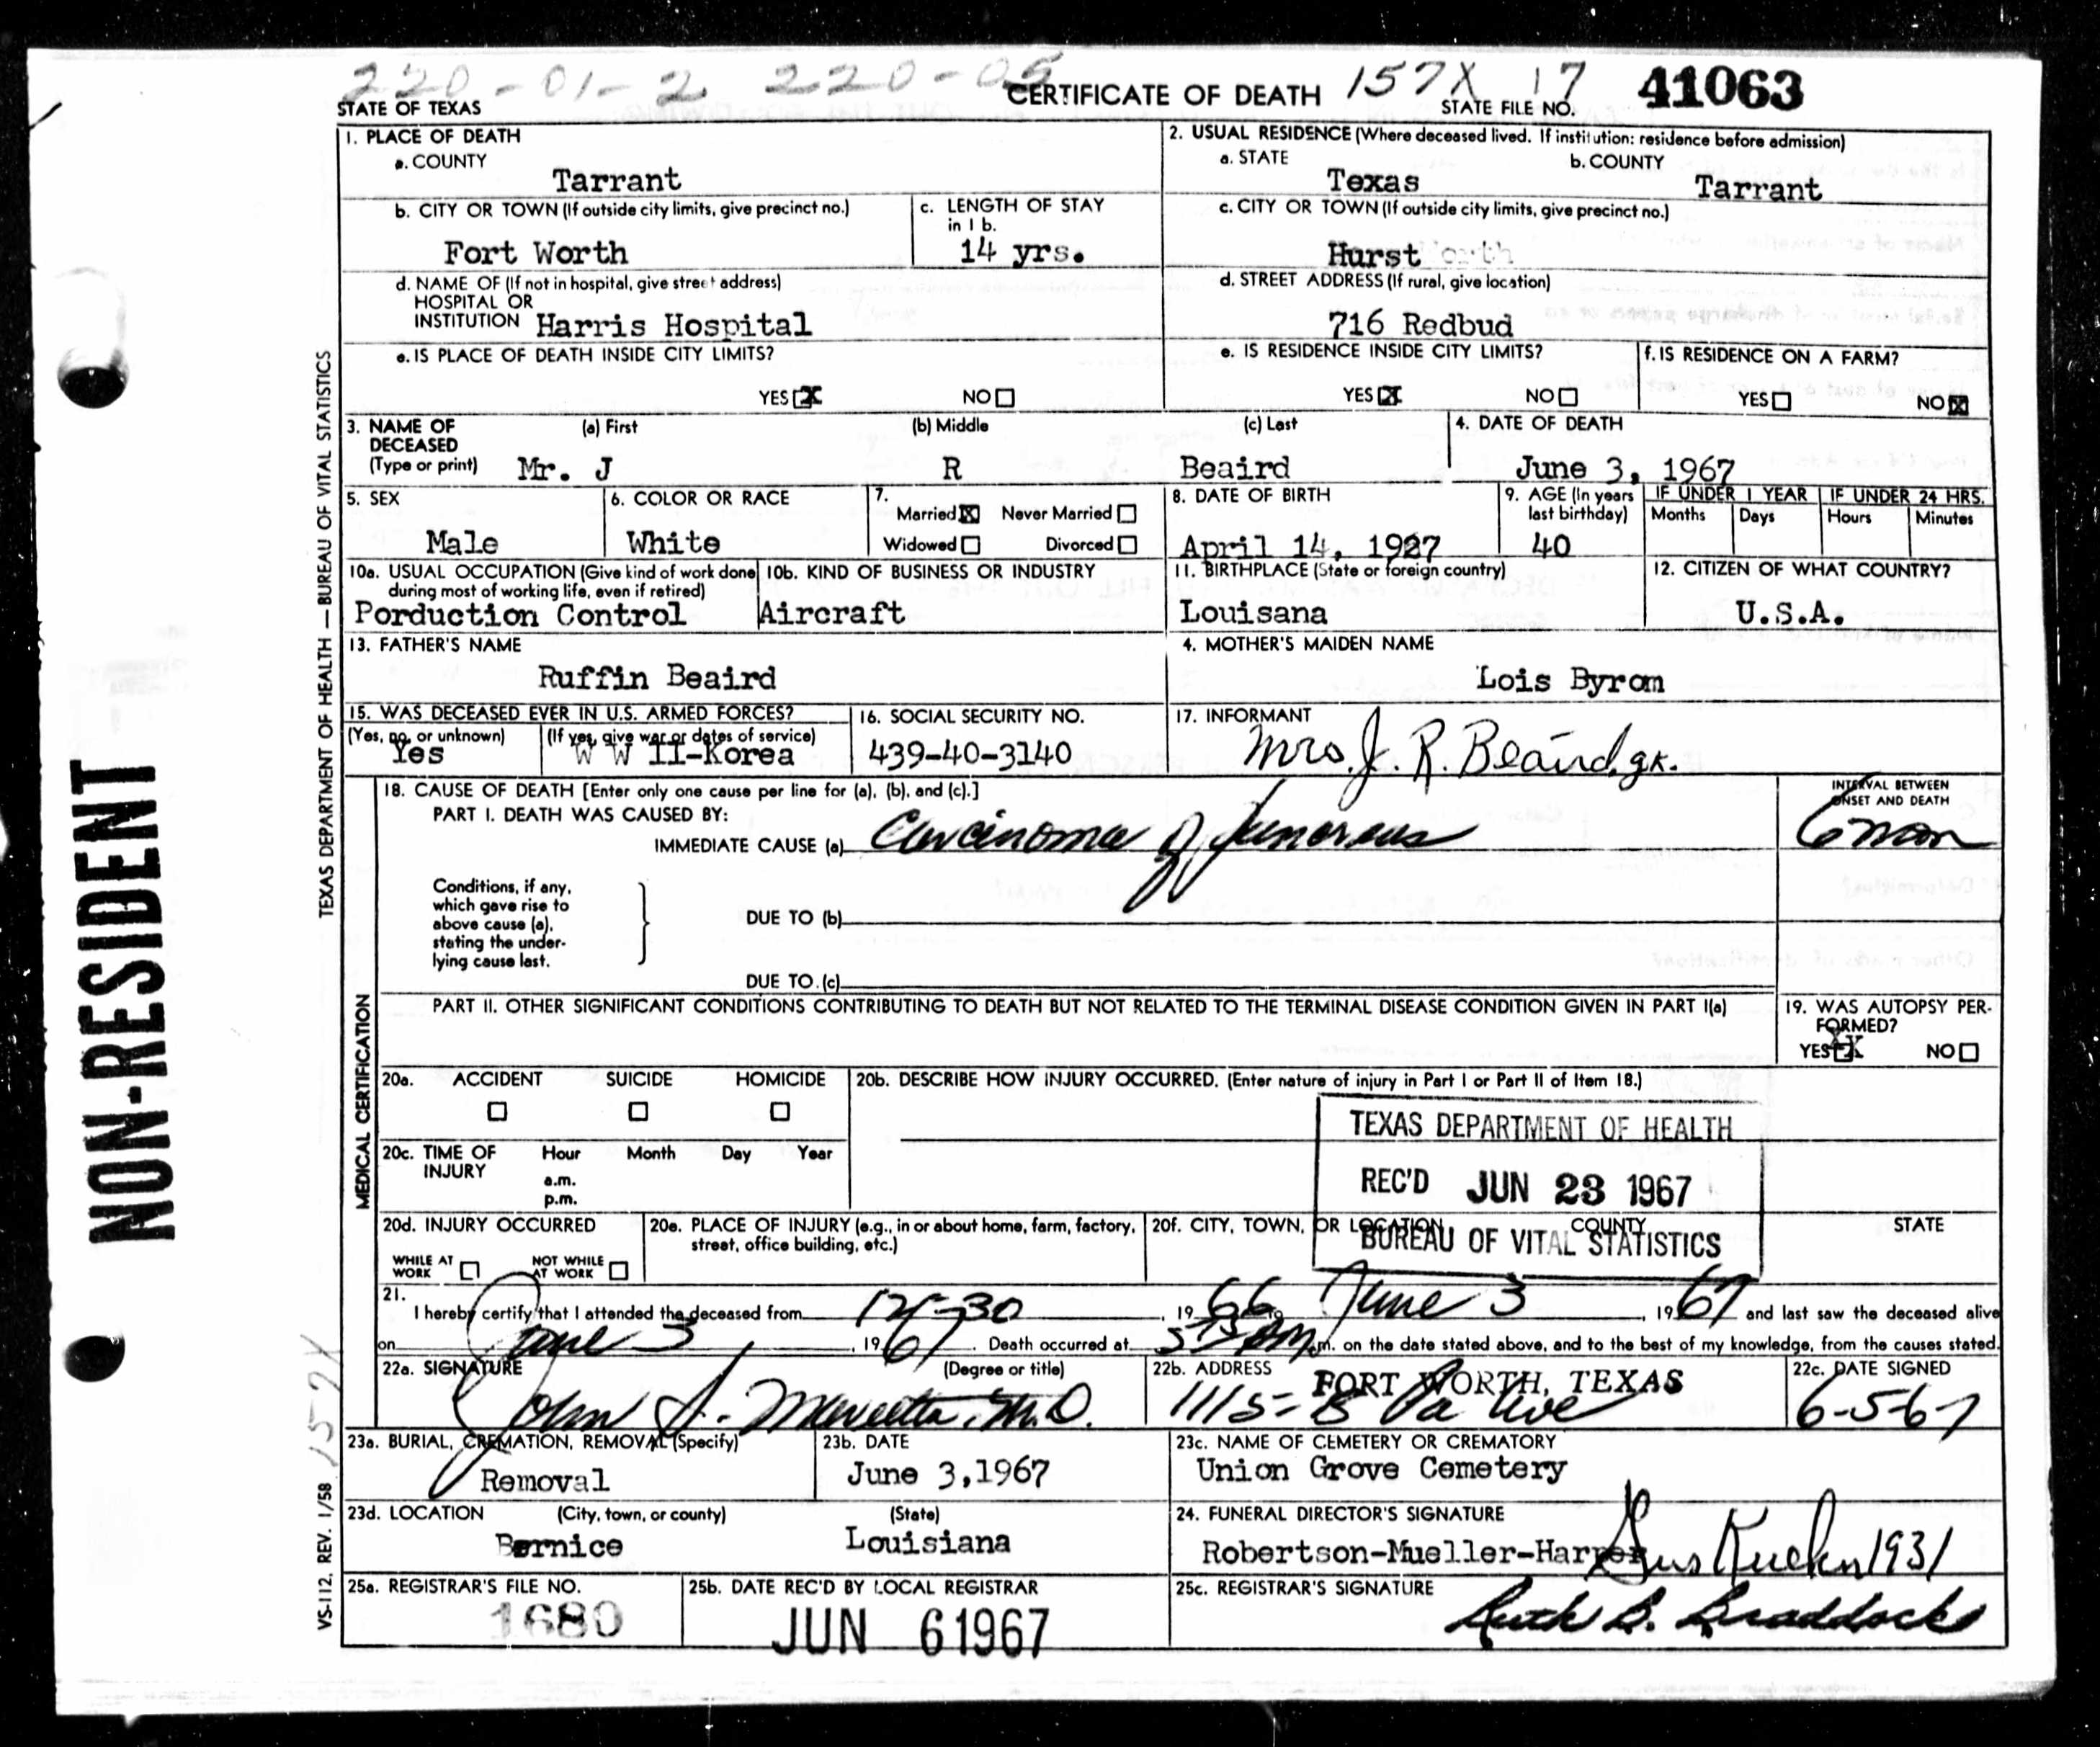 220-01-2 220-05
CERTIFICATE OF DEATH 157X 17 41063
STATE OF TEXAS STATE FILE NO.
1. PLACE OF DEATH
a. COUNTY
Tarrant
2. USUAL RESIDENCE (Where deceased lived. If institution: residence before admission)
a. STATE b. COUNTY
Texas Tarrant
b. CITY OR TOWN (If outside city limits, give precinct no.)
Fort Worth
c. LENGTH OF STAY
in 1 b.
14 yrs.
c. CITY OR TOWN (If outside city limits, give precinct no.)
Hurst
d. NAME OF (If not in hospital, give street address)
HOSPITAL OR
INSTITUTION Harris Hospital
d. STREET ADDRESS (If rural, give location)
716 Redbud
e. IS PLACE OF DEATH INSIDE CITY LIMITS?
YES X NO
e. IS RESIDENCE INSIDE CITY LIMITS?
YES X NO
f. IS RESIDENCE ON A FARM?
YES NO X
3. NAME OF DECEASED
(Type or print)
(a) First (b) Middle (c) Last
Mr. J R Beaird
4. DATE OF DEATH
June 3, 1967
5. SEX
Male
6. COLOR OR RACE
White
7.
Married X Never Married
Widowed Divorced
8. DATE OF BIRTH
April 14, 1927
9. AGE (In years
last birthday)
40
IF UNDER 1 YEAR IF UNDER 24 HRS.
Months Days Hours Minutes
10a. USUAL OCCUPATION (Give kind of work done
during most of working life, even if retired)
Porduction Control
10b. KIND OF BUSINESS OR INDUSTRY
Aircraft
11. BIRTHPLACE (State or foreign country)
Louisana
12. CITIZEN OF WHAT COUNTRY?
U.S.A.
13. FATHER'S NAME
Ruffin Beaird
4. MOTHER'S MAIDEN NAME
Lois Byrom
15. WAS DECEASED EVER IN U.S. ARMED FORCES?
(Yes, no, or unknown) (If yes, give war or dates of service)
Yes W W II-Korea
16. SOCIAL SECURITY NO.
439-40-3140
17. INFORMANT
Mrs. J. R. Beaird, gk.
18. CAUSE OF DEATH [Enter only one cause per line for (a), (b), and (c).]
PART I. DEATH WAS CAUSED BY:
IMMEDIATE CAUSE (a) Carcinoma of
INTERVAL BETWEEN
ONSET AND DEATH
Conditions, if any,
which gave rise to
above cause (a),
stating the under-
lying cause last.
DUE TO (b)
DUE TO (c)
PART II. OTHER SIGNIFICANT CONDITIONS CONTRIBUTING TO DEATH BUT NOT RELATED TO THE TERMINAL DISEASE CONDITION GIVEN IN PART I(a)
19. WAS AUTOPSY PER-
FORMED?
YES X NO
20a. ACCIDENT SUICIDE HOMICIDE
20b. DESCRIBE HOW INJURY OCCURRED. (Enter nature of injury in Part I or Part II of Item 18.)
TEXAS DEPARTMENT OF HEALTH
REC'D JUN 23 1967
BUREAU OF VITAL STATISTICS
20c. TIME OF
INJURY
Hour Month Day Year
a.m.
p.m.
20d. INJURY OCCURRED
WHILE AT
WORK
NOT WHILE
AT WORK
20e. PLACE OF INJURY (e.g., in or about home, farm, factory,
street, office building, etc.)
20f. CITY, TOWN, OR LOCATION COUNTY STATE
21.
I hereby certify that I attended the deceased from 12-30, 1966 to June 3, 1967 and last saw the deceased alive
on June 3, 1967. Death occurred at m. on the date stated above, and to the best of my knowledge, from the causes stated.
22a. SIGNATURE (Degree or title)
John A. M.D.
22b. ADDRESS
FORT WORTH, TEXAS
1115-8 Pa Ave
22c. DATE SIGNED
6-5-67
23a. BURIAL, CREMATION, REMOVAL (Specify)
Removal
23b. DATE
June 3,1967
23c. NAME OF CEMETERY OR CREMATORY
Union Grove Cemetery
23d. LOCATION (City, town, or county) (State)
Bernice Louisiana
24. FUNERAL DIRECTOR'S SIGNATURE
Robertson-Mueller-Harper Gus Kuehn 1931
25a. REGISTRAR'S FILE NO.
1680
25b. DATE REC'D BY LOCAL REGISTRAR
JUN 6 1967
25c. REGISTRAR'S SIGNATURE
Ruth B. Braddock
NON-RESIDENT
TEXAS DEPARTMENT OF HEALTH — BUREAU OF VITAL STATISTICS
MEDICAL CERTIFICATION
VS-112, REV. 1/58